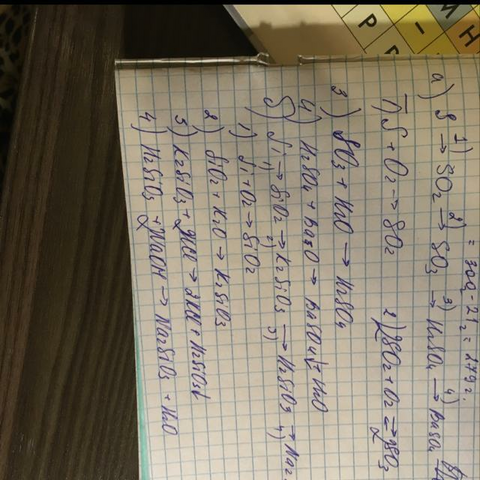 = 300г - 21г = 279г.
а) S →¹⁾ SO₂ →²⁾ SO₃ →³⁾ H₂SO₄ →⁴⁾ BaSO₄
1) S + O₂ → SO₂ 2) 2SO₂ + O₂ ⇄ 2SO₃
3) SO₃ + H₂O → H₂SO₄
4) H₂SO₄ + BaO → BaSO₄↓ + H₂O
б) Si →¹⁾ SiO₂ →²⁾ K₂SiO₃ →³⁾ H₂SiO₃ →⁴⁾ Na₂
1) Si + O₂ → SiO₂
2) SiO₂ + K₂O → K₂SiO₃
3) K₂SiO₃ + 2HCl → 2KCl + H₂SiO₃↓
4) H₂SiO₃ + 2NaOH → Na₂SiO₃ + H₂O